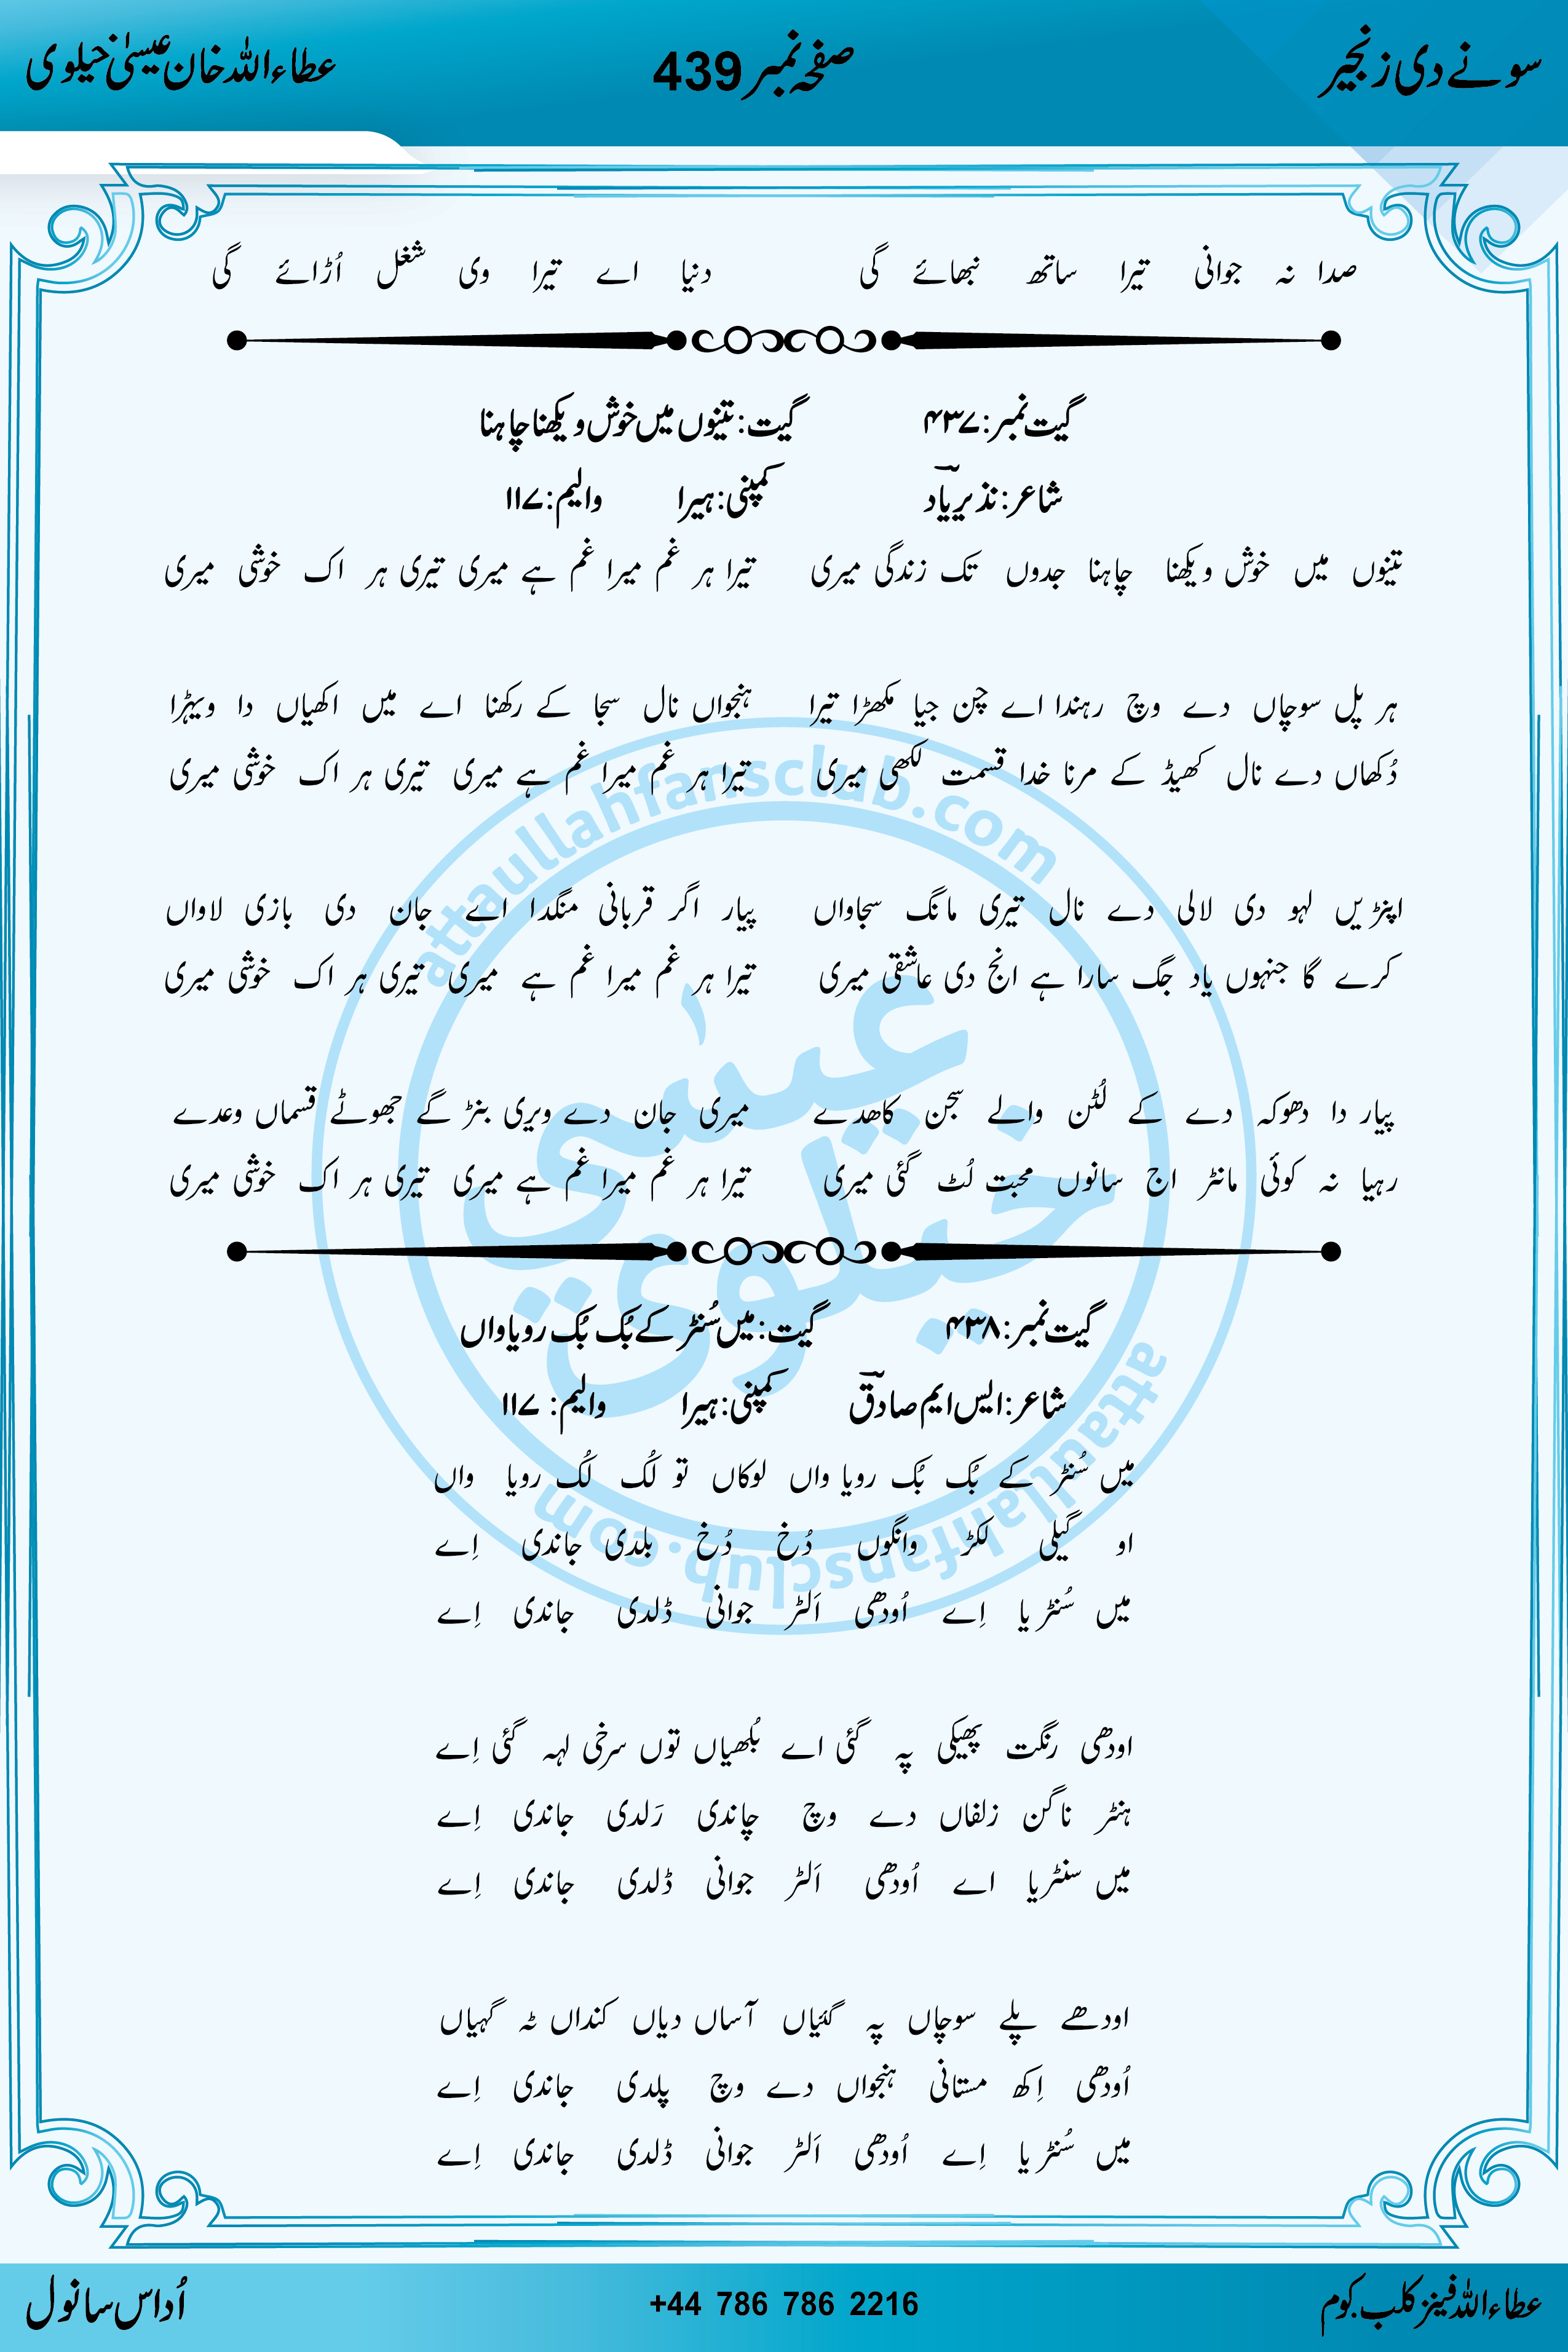 سونے دی زنجیر صفحہ نمبر 439 عطاءاللہ خان عیسیٰ خیلوی
صدا نہ جوانی تیرا ساتھ نبھائے گی دنیا اے تیرا وی شغل اُڑائے گی
گیت نمبر: ۴۳۷ گیت: تینوں میں خوش ویکھنا چاہنا
شاعر: نذیر یاد کمپنی: ہیرا والیم: ۱۱۷
تینوں میں خوش ویکھنا چاہنا جدوں تک زندگی میری تیرا ہر غم میرا غم ہے میری تیری ہر اک خوشی میری
ہر پل سوچاں دے وچ رہندا اے چن جیا مکھڑا تیرا ہنجواں نال سجا کے رکھنا اے میں اکھیاں دا ویہڑا
دُکھاں دے نال کھیڈ کے مرنا خدا قسمت لکھی میری تیرا ہر غم میرا غم ہے میری تیری ہر اک خوشی میری
اپنڑیں لہو دی لالی دے نال تیری مانگ سجاواں پیار اگر قربانی منگدا اے جان دی بازی لاواں
کرے گا جنہوں یاد جگ سارا ہے انج دی عاشقی میری تیرا ہر غم میرا غم ہے میری تیری ہر اک خوشی میری
پیار دا دھوکہ دے کے لُٹن والے سجن کاھدے میری جان دے ویری بنڑ گے جھوٹے قسماں وعدے
رہیا نہ کوئی مانڑ اج سانوں محبت لُٹ گئی میری تیرا ہر غم میرا غم ہے میری تیری ہر اک خوشی میری
گیت نمبر: ۴۳۸ گیت: میں سُنڑ کے بُک بُک رویا واں
شاعر: ایس ایم صادق کمپنی: ہیرا والیم: ۱۱۷
میں سُنڑ کے بُک بُک رویا واں لوکاں تو لُک لُک رویا واں
او گیلی لکڑ وانگوں دُخ دُخ بلدی جاندی اِے
میں سُنڑیا اِے اُودھی اَلڑ جوانی ڈلدی جاندی اِے
اودھی رنگت پھیکی پہ گئی اے بُلھیاں توں سرخی لہہ گئی اِے
ہنڑ ناگن زلفاں دے وچ چاندی رَلدی جاندی اِے
میں سنڑیا اے اُودھی اَلڑ جوانی ڈلدی جاندی اِے
اودھے پلے سوچاں پہ گئیاں آساں دیاں کنداں ٹہ گہیاں
اُودھی اِکھ مستانی ہنجواں دے وچ پلدی جاندی اِے
میں سُنڑیا اِے اُودھی اَلڑ جوانی ڈلدی جاندی اِے
attaullahfansclub.com
عیسٰی
خیلوی
attaullahfansclub.com
عطاءاللہ فینز کلب.کوم +44 786 786 2216 اُداس سانول